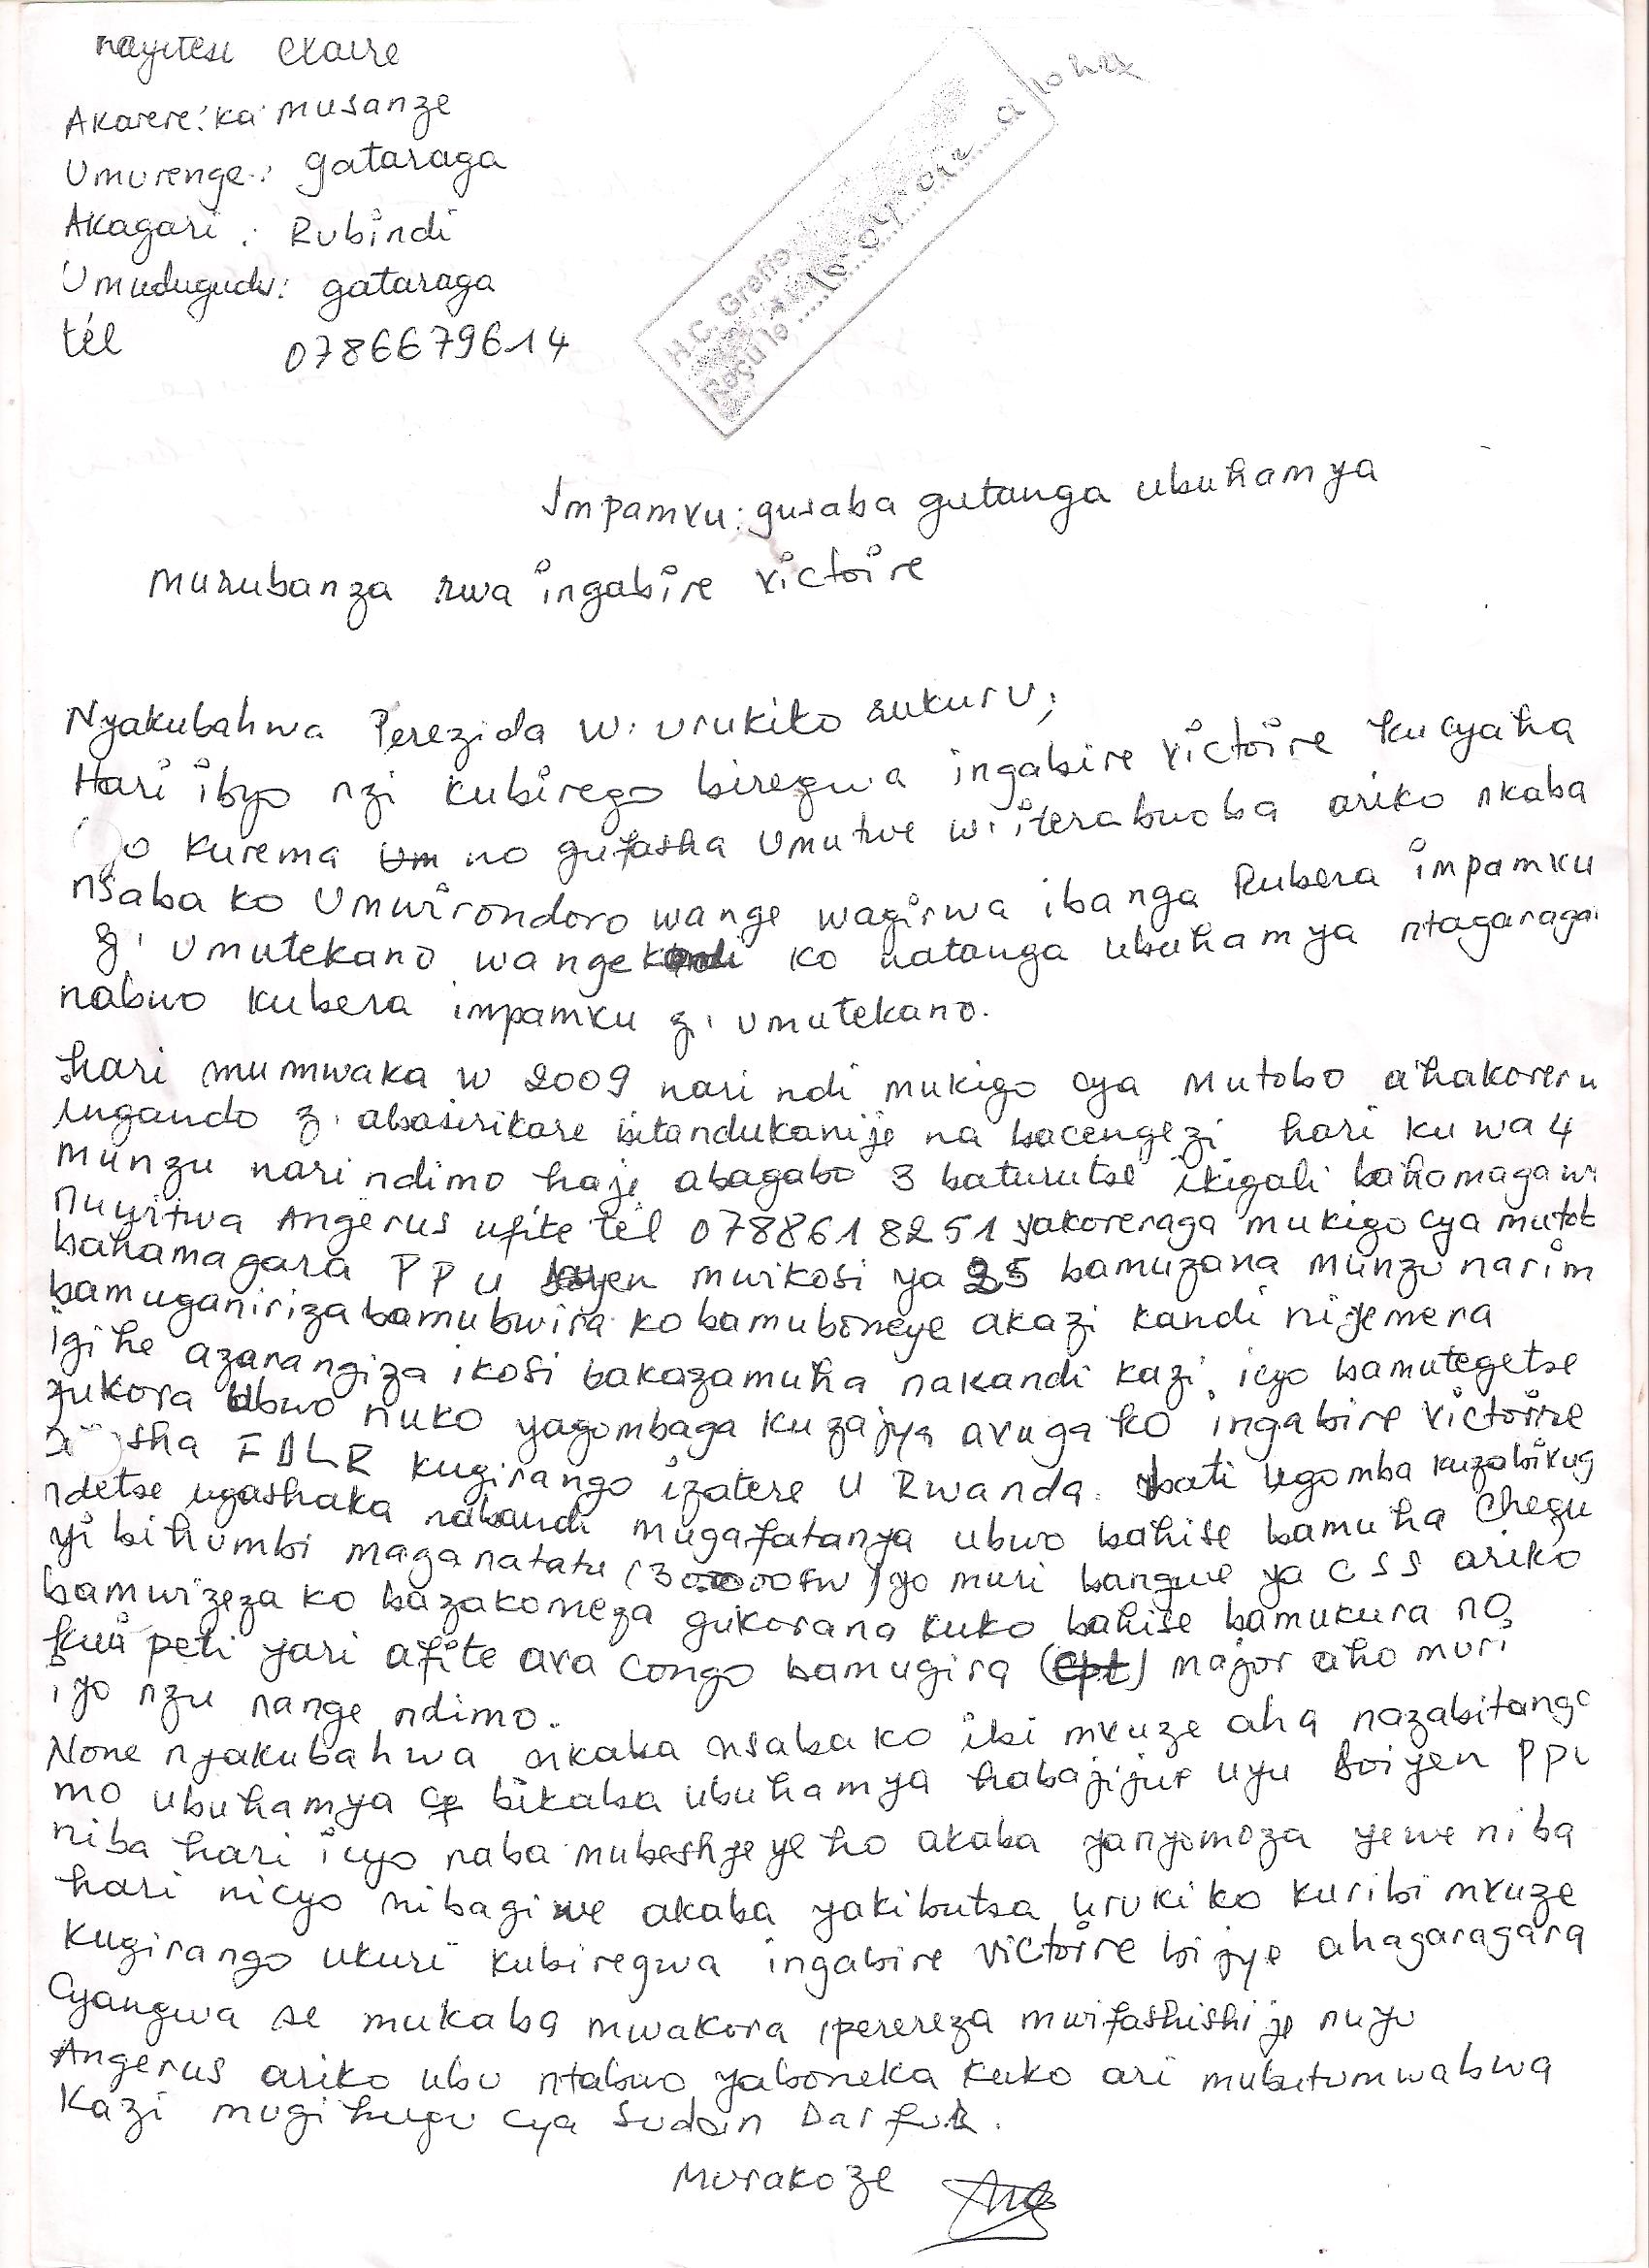 nayitesi claire
Akarere: ka musanze
Umurenge: gataraga
Akagari : Rubindi
Umudugudu: gataraga
tél 0786679614
H.C. Greffe
Reçu le
Impamvu: gusaba gutanga ubuhamya
murubanza rwa ingabire victoire
Nyakubahwa Perezida w' urukiko rukuru;
Hari ibyo nzi kubirego biregwa ingabire victoire kucyaha
yo kurema no gufasha umutwe w' iterabwoba ariko nkaba
nsaba ko Umwirondoro wange wagirwa ibanga kubera impamvu
z' umutekano wange kandi ko natanga ubuhamya ntagaragai
nabwo kubera impamvu z' umutekano.
hari mumwaka w 2009 nari ndi mukigo cya mutobo ahakoreru
ingando z' abasirikare bitandukanije na bacengezi hari kuwa 4
munzu nari ndimo haje abagabo 3 baturutse ikigali bahamagawi
nuyitwa Angerus ufite tél 0788618251 yakoreraga mukigo cya mutob
bahamagara PPU mwikosi ya 25 bamuzana munzu narim
bamuganiriza bamubwira ko bamuboneye akazi kandi nijemera
igihe azarangiza ikosi bakazamuha nakandi kazi. icyo bamutegetse
gukora ubwo nuko yagombaga kuzajya avuga ko ingabire victoire
sha FDLR kugirango izatere U Rwanda. bati ugomba kuzabivug
ndetse ugashaka nabandi mugafatanya ubwo bahise bamuha chequ
yi bihumbi maganatatu (300000frw) yo muri banque ya CSS ariko
bamwizeza ko bazakomeza gukorana kuko bahise bamukura no
kui peti yari afite ava congo bamugira (cpt) major aho muri
iyo nzu nange ndimo.
None nyakubahwa nkaba nsaba ko ibi mvuze aha nazabitanga
mo ubuhamya bikaba ubuhamya habajijwe uyu Boiyen PPU
niba hari icyo naba mubeshyeye ho akaba yanyomoza yewe niba
hari nicyo nibagiwe akaba yakibutsa urukiko kuribi mvuze
kugirango ukuri kubiregwa ingabire victoire bijye ahagaragara
Cyangwa se mukaba mwakora iperereza mwifashishije nuyu
Angerus ariko ubu ntabwo yaboneka kuko ari mubutumwabwa
kazi mugihugu cya Sudan Darfur.
Murakoze